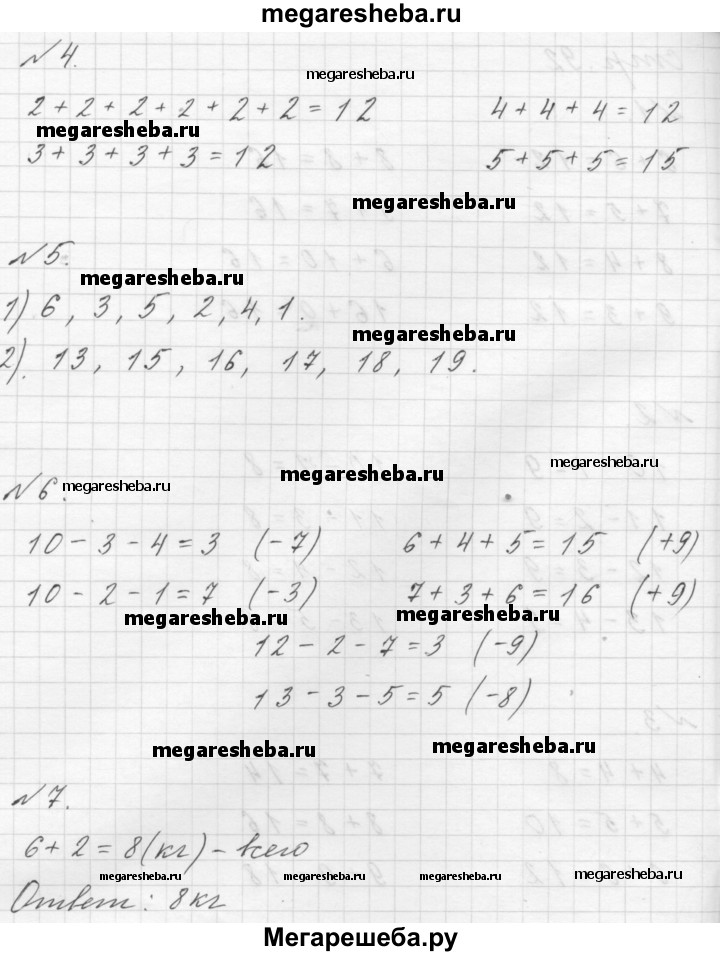 megaresheba.ru
№ 4.
megaresheba.ru
2 + 2 + 2 + 2 + 2 + 2 = 12    4 + 4 + 4 = 12
megaresheba.ru
3 + 3 + 3 + 3 = 12    5 + 5 + 5 = 15
megaresheba.ru
№ 5.
megaresheba.ru
1) 6, 3, 5, 2, 4, 1.
megaresheba.ru
2). 13, 15, 16, 17, 18, 19.
megaresheba.ru
megaresheba.ru
№ 6. megaresheba.ru
10 - 3 - 4 = 3 (-7)    6 + 4 + 5 = 15 (+9)
10 - 2 - 1 = 7 (-3)    7 + 3 + 6 = 16 (+9)
megaresheba.ru    megaresheba.ru
12 - 2 - 7 = 3 (-9)
13 - 3 - 5 = 5 (-8)
megaresheba.ru    megaresheba.ru
№ 7.
6 + 2 = 8 (кг) - всего
megaresheba.ru    megaresheba.ru    megaresheba.ru    megaresheba.ru
Ответ: 8 кг
Мегарешеба.ру